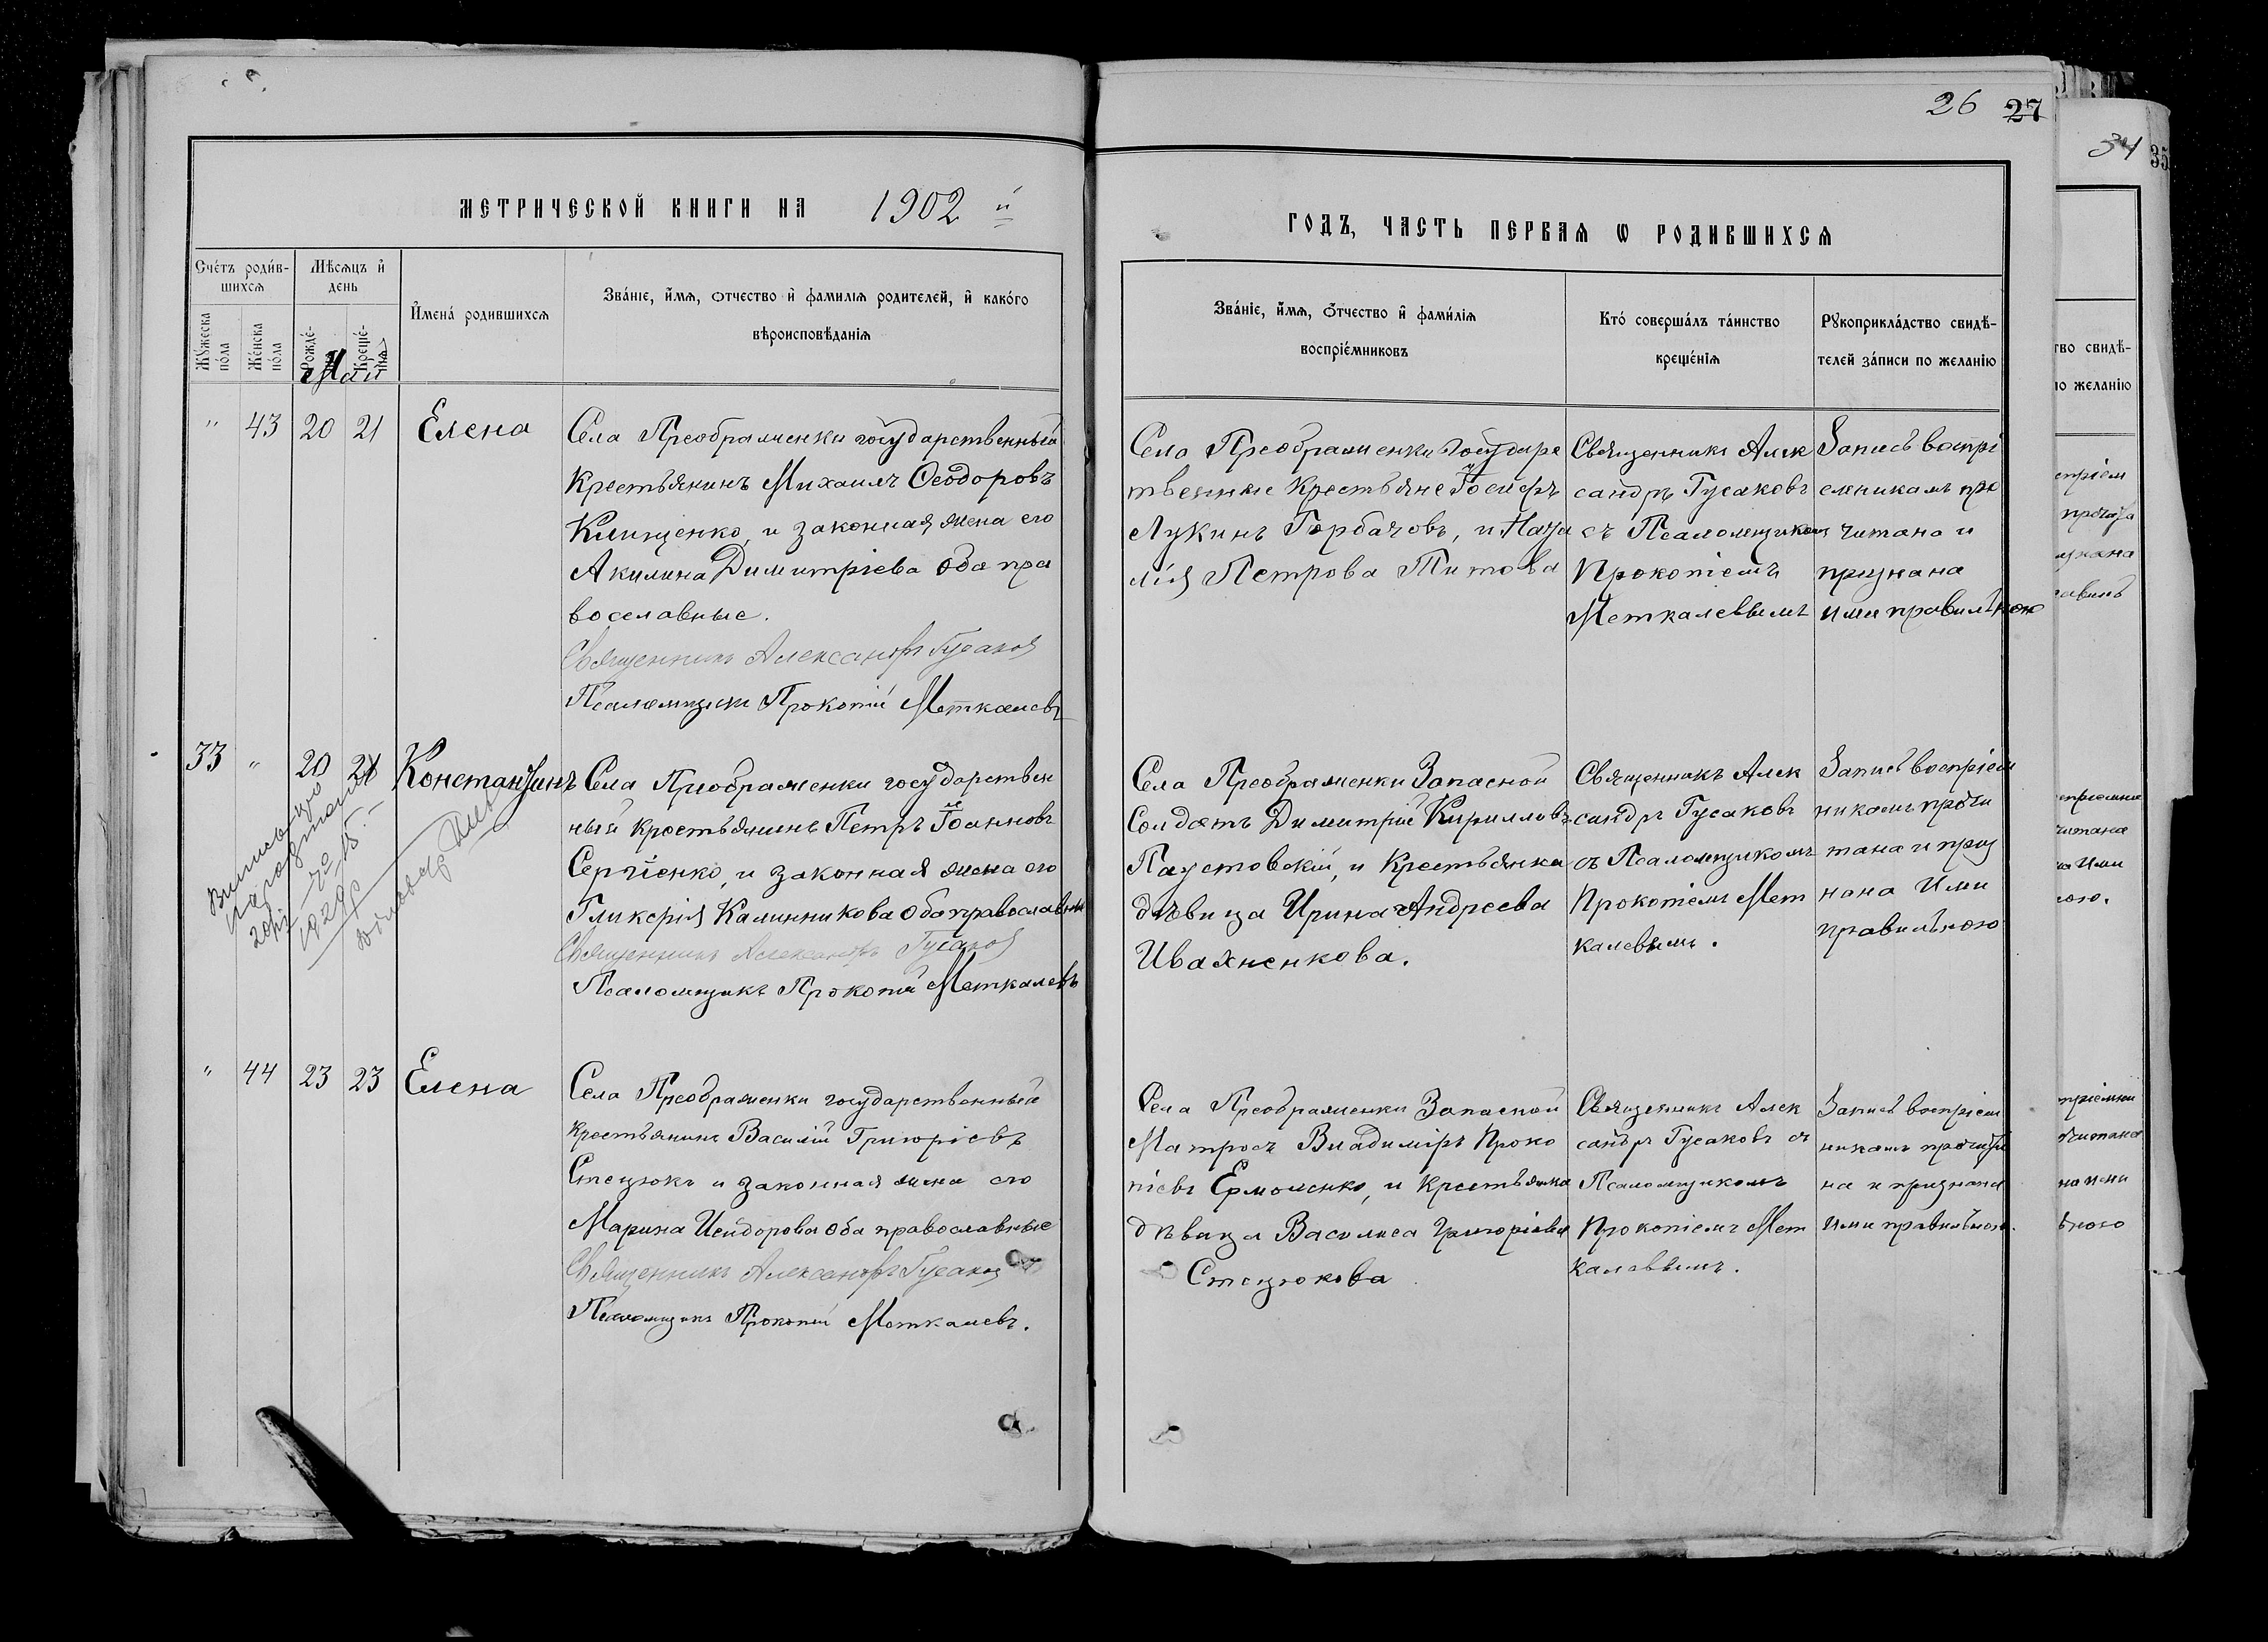 26 27
34 35
МЕТРИЧЕСКОЙ КНИГИ НА 1902 й
ГОДЪ, ЧАСТЬ ПЕРВАЯ Ѡ РОДИВШИХСЯ
Счетъ родив-
шихся
Мужеска
пола
Женска
пола
Мѣсяцъ и
день
Рожде-
Креще-
нія
Май
Имена родившихся
Званіе, имя, отчество и фамилія родителей, и какого
вѣроисповѣданія
Званіе, имя, отчество и фамилія
воспріемниковъ
Кто совершалъ таинство
крещенія
Рукоприкладство свидѣ-
телей записи по желанію
" 43 20 21 Елена
Села Преображенки государственный
крестьянинъ Михаилъ Ѳеодоровъ
Клищенко, и законная жена его
Акилина Димитріева оба пра
вославные.
Священникъ Александръ Гусаков
Псаломщикъ Прокопій Меткалевъ
Села Преображенки государс
твенные крестьяне Іосифъ
Лукинъ Горбачовъ, и Ната
лія Петрова Титова
Священникъ Алек
сандръ Гусаковъ
съ Псаломщикомъ
Прокопіемъ
Меткалевымъ
Запись воспрі
емникамъ про
читана и
признана
ими правильною
33 " 20 21 Константинъ
Села Преображенки государствен
ный крестьянинъ Петръ Іоанновъ
Сергіенко, и законная жена его
Гликерія Калинникова оба православны
Священникъ Александръ Гусаков
Псаломщикъ Прокопій Меткалевъ
Села Преображенки Запасной
Солдатъ Димитрій Кирилловъ
Паустовскій, и крестьянка
дѣвица Ирина Андреева
Ивахненкова.
Священникъ Алек
сандръ Гусаковъ
съ Псаломщикомъ
Прокопіемъ Мет
калевымъ.
Запись воспріем
никамъ прочи
тана и приз
нана Ими
правильною
1929р
" 44 23 23 Елена
Села Преображенки государственный
крестьянинъ Василій Григоріевъ
Стецюкъ и законная жена его
Марина Исидорова оба православные
Священникъ Александръ Гусаков
Псаломщикъ Прокопій Меткалевъ.
Села Преображенки Запасной
Матросъ Владиміръ Проко
піевъ Ермоленко, и крестьянка
дѣвица Василиса Григоріева
Стецюкова
Священникъ Алек
сандръ Гусаковъ съ
Псаломщикомъ
Прокопіемъ Мет
калевымъ.
Запись воспріем
никамъ прочита
на и признана
ими правильною.